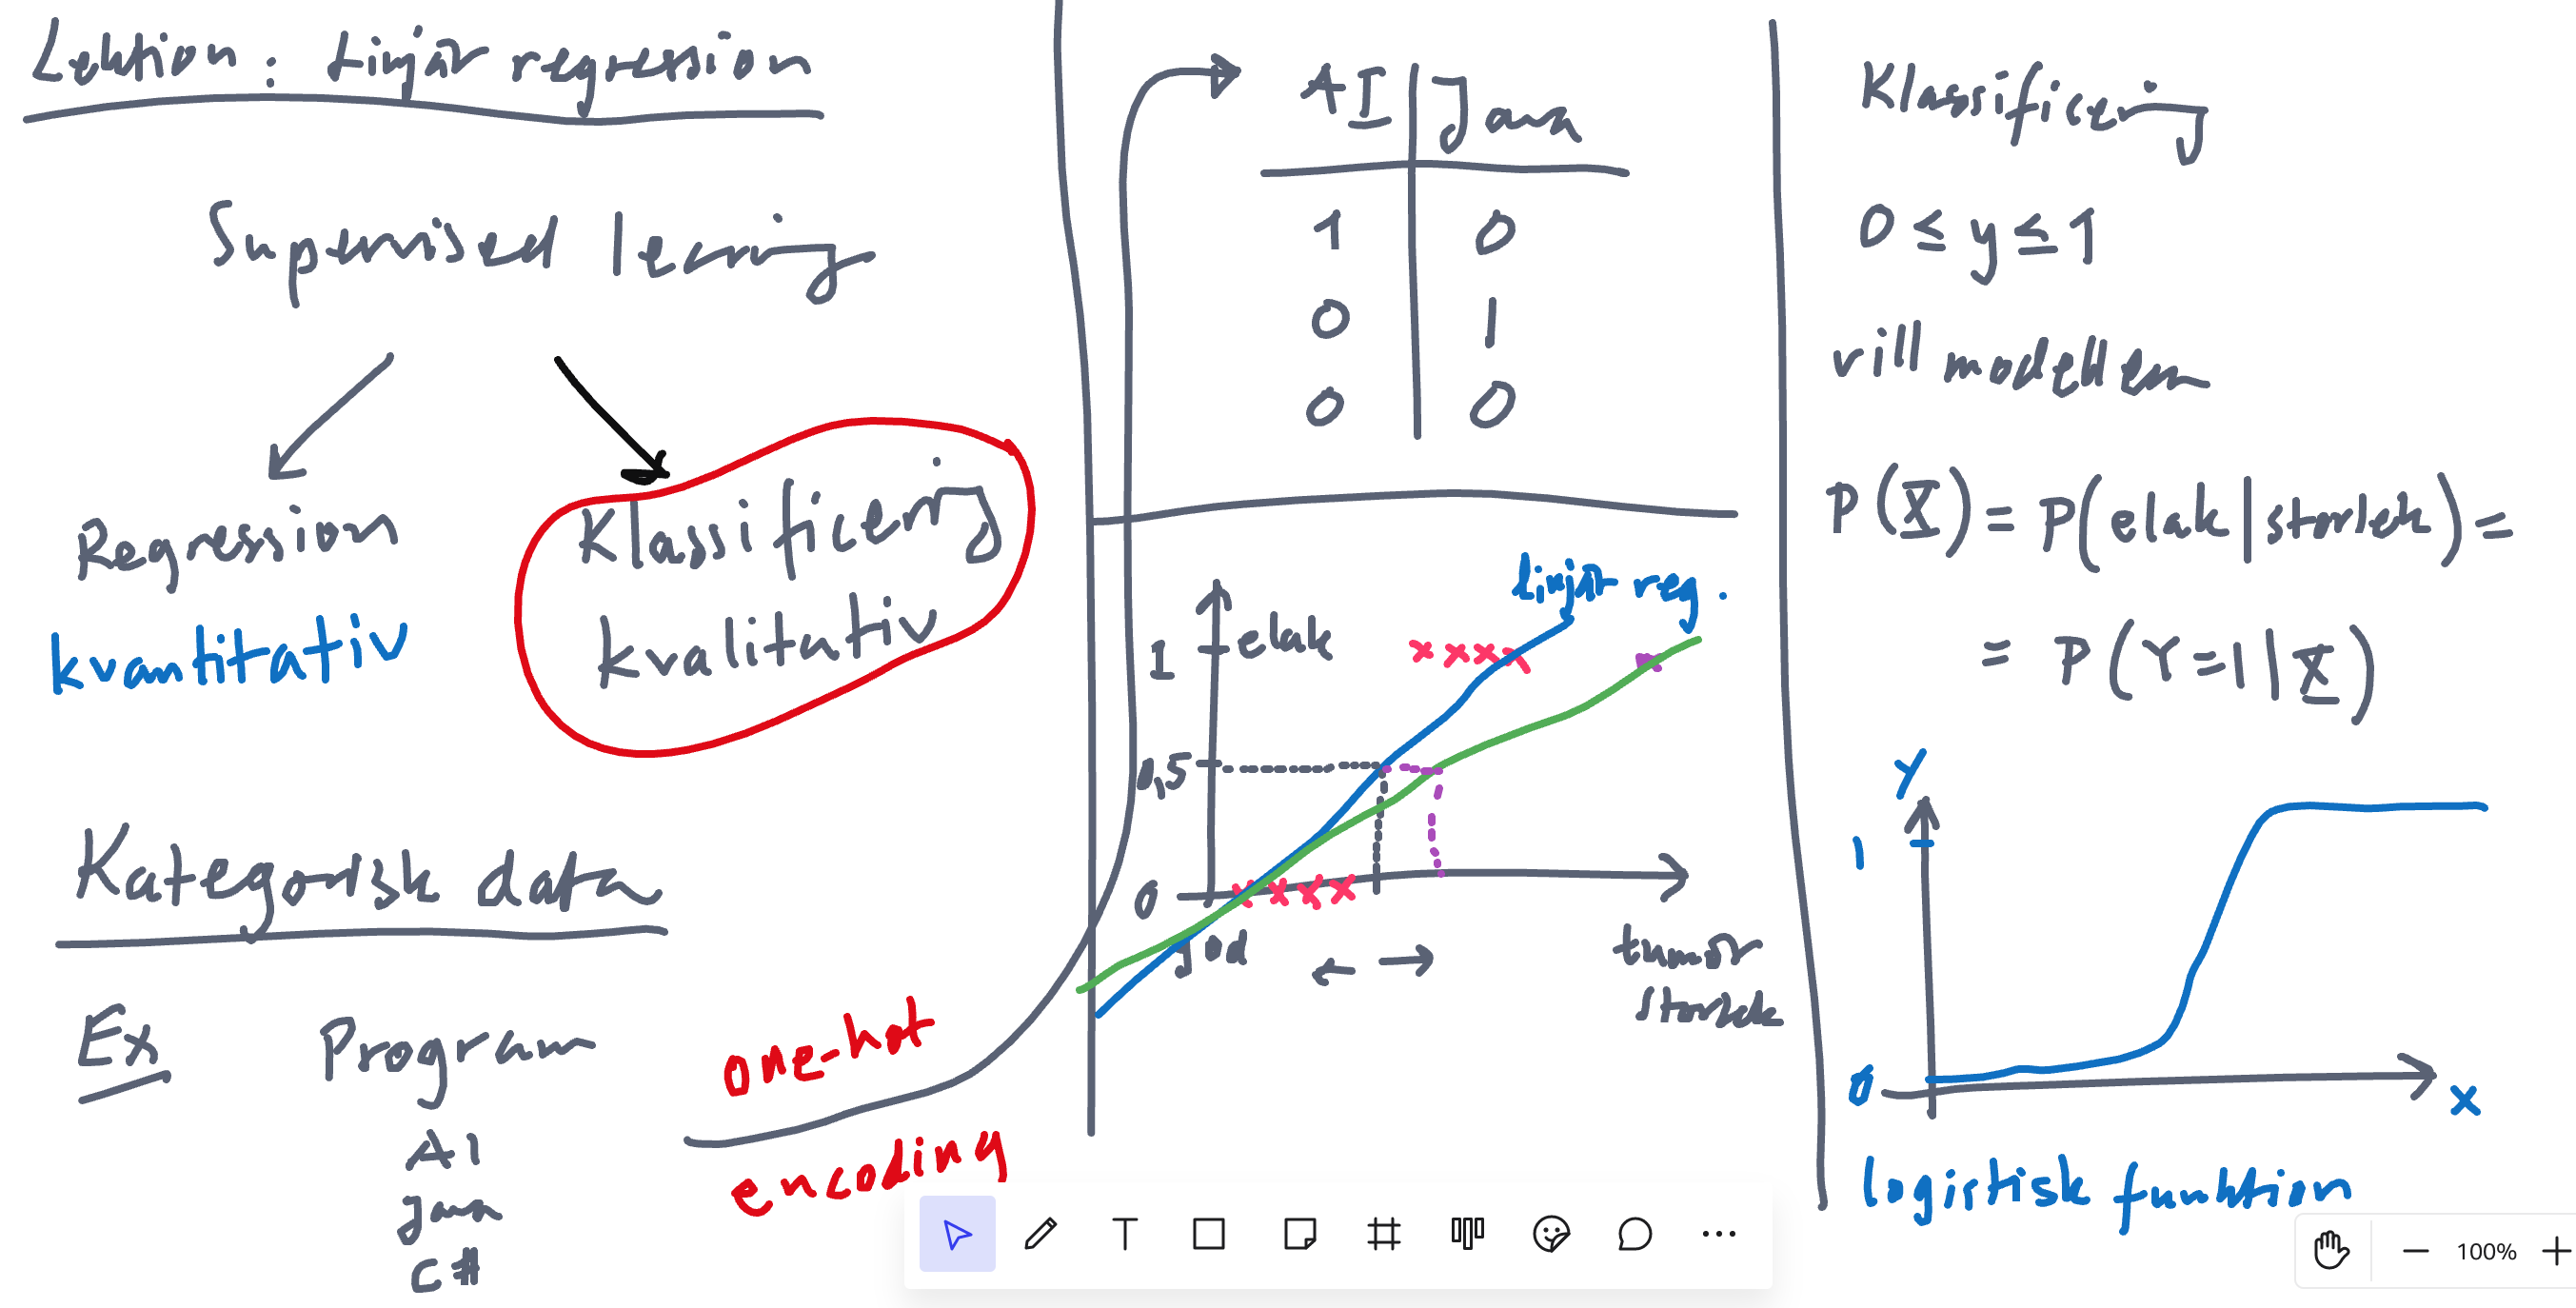 Lektion: Linjär regression
Supervised lerning
Regression
kvantitativ
Klassificering
kvalitativ
Kategorisk data
Ex Program
AI
Java
C#
one-hot
encoding
AI Java
1 0
0 1
0 0
linjär reg.
1 elak
0,5
0
god
tumör
storlek
Klassificering
0 ≤ y ≤ 1
vill modellera
P(X) = P(elak|storlek) =
= P(Y=1|X)
Y
1
0
x
logistisk funktion
100%